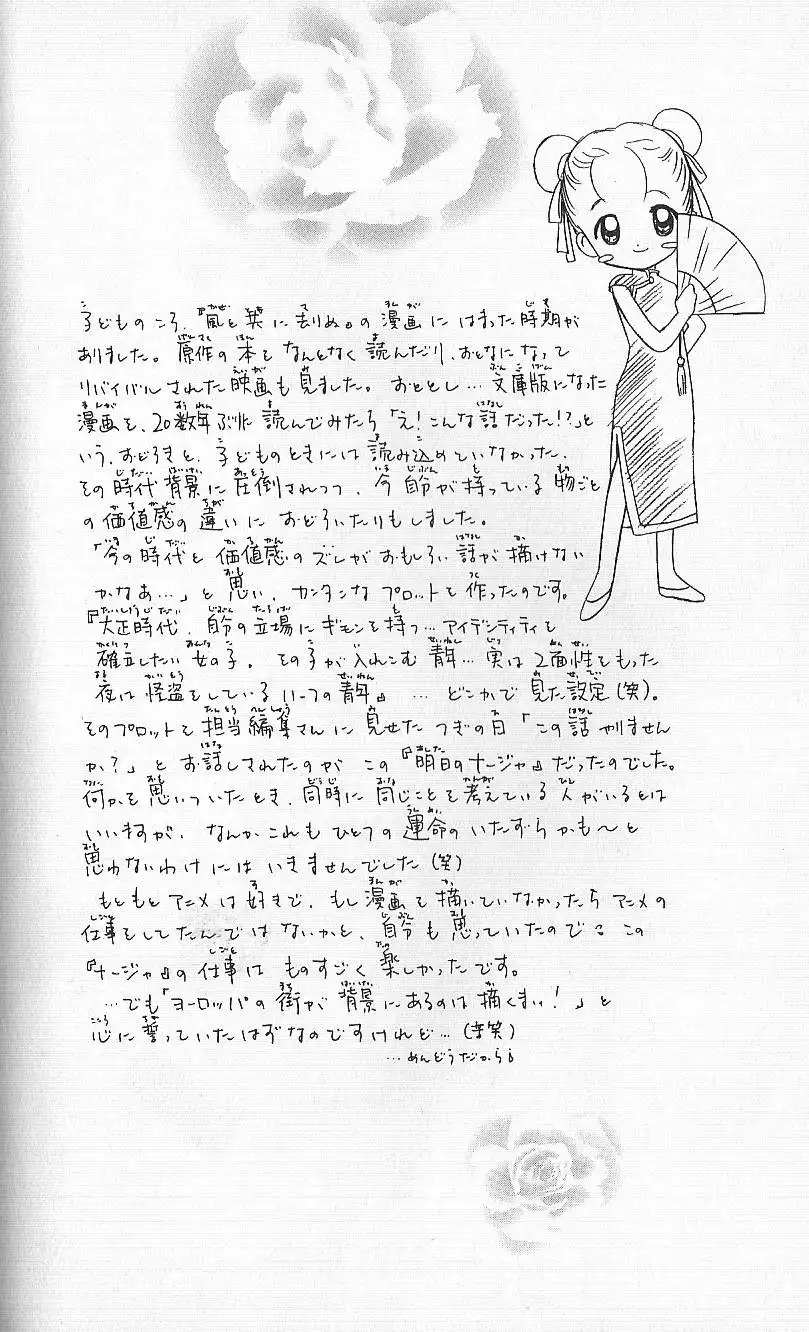 子どものころ、『風と共に去りぬ』の漫画にはまった時期が
ありました。原作の本をなんとなく読んだり、おとなになって
リバイバルされた映画も見ました。おととし…文庫版になった
漫画を、20数年ぶりに読んでみたら「え!こんな話だった!?」と
いう、おどろきと、子どものときには読み込めていなかった、
その時代背景に圧倒されつつ、今自分が持っている物ごと
の価値感の違いにおどろいたりもしました。
「今の時代と価値感のズレがおもしろい話が描けない
かなあ…」と思い、カンタンなプロットを作ったのです。
『大正時代、自分の立場にギモンを持つ…アイデンティティを
確立したい女の子。その子が入れこむ青年…実は2面性をもった
夜は怪盗をしている1つの青年』…どこかで見た設定(笑)。
そのプロットを担当編集さんに見せたつぎの日「この話やりません
か?」とお話しされたのがこの『明日のナージャ』だったのでした。
何かを思いついたとき、同時に同じことを考えている人がいるとは
いいますが、なんかこれもひとつの運命のいたずらかも〜と
思わないわけにはいきませんでした(笑)
もともとアニメは好きで、もし漫画を描いていなかったらアニメの
仕事をしてたんではないかと、自分も思っていたのでこの
『ナージャ』の仕事はものすごく楽しかったです。
…でも「ヨーロッパの街が背景にあるのは描くまい!」と
心に誓っていたはずなのですけれど…(苦笑)
…めんどうだから